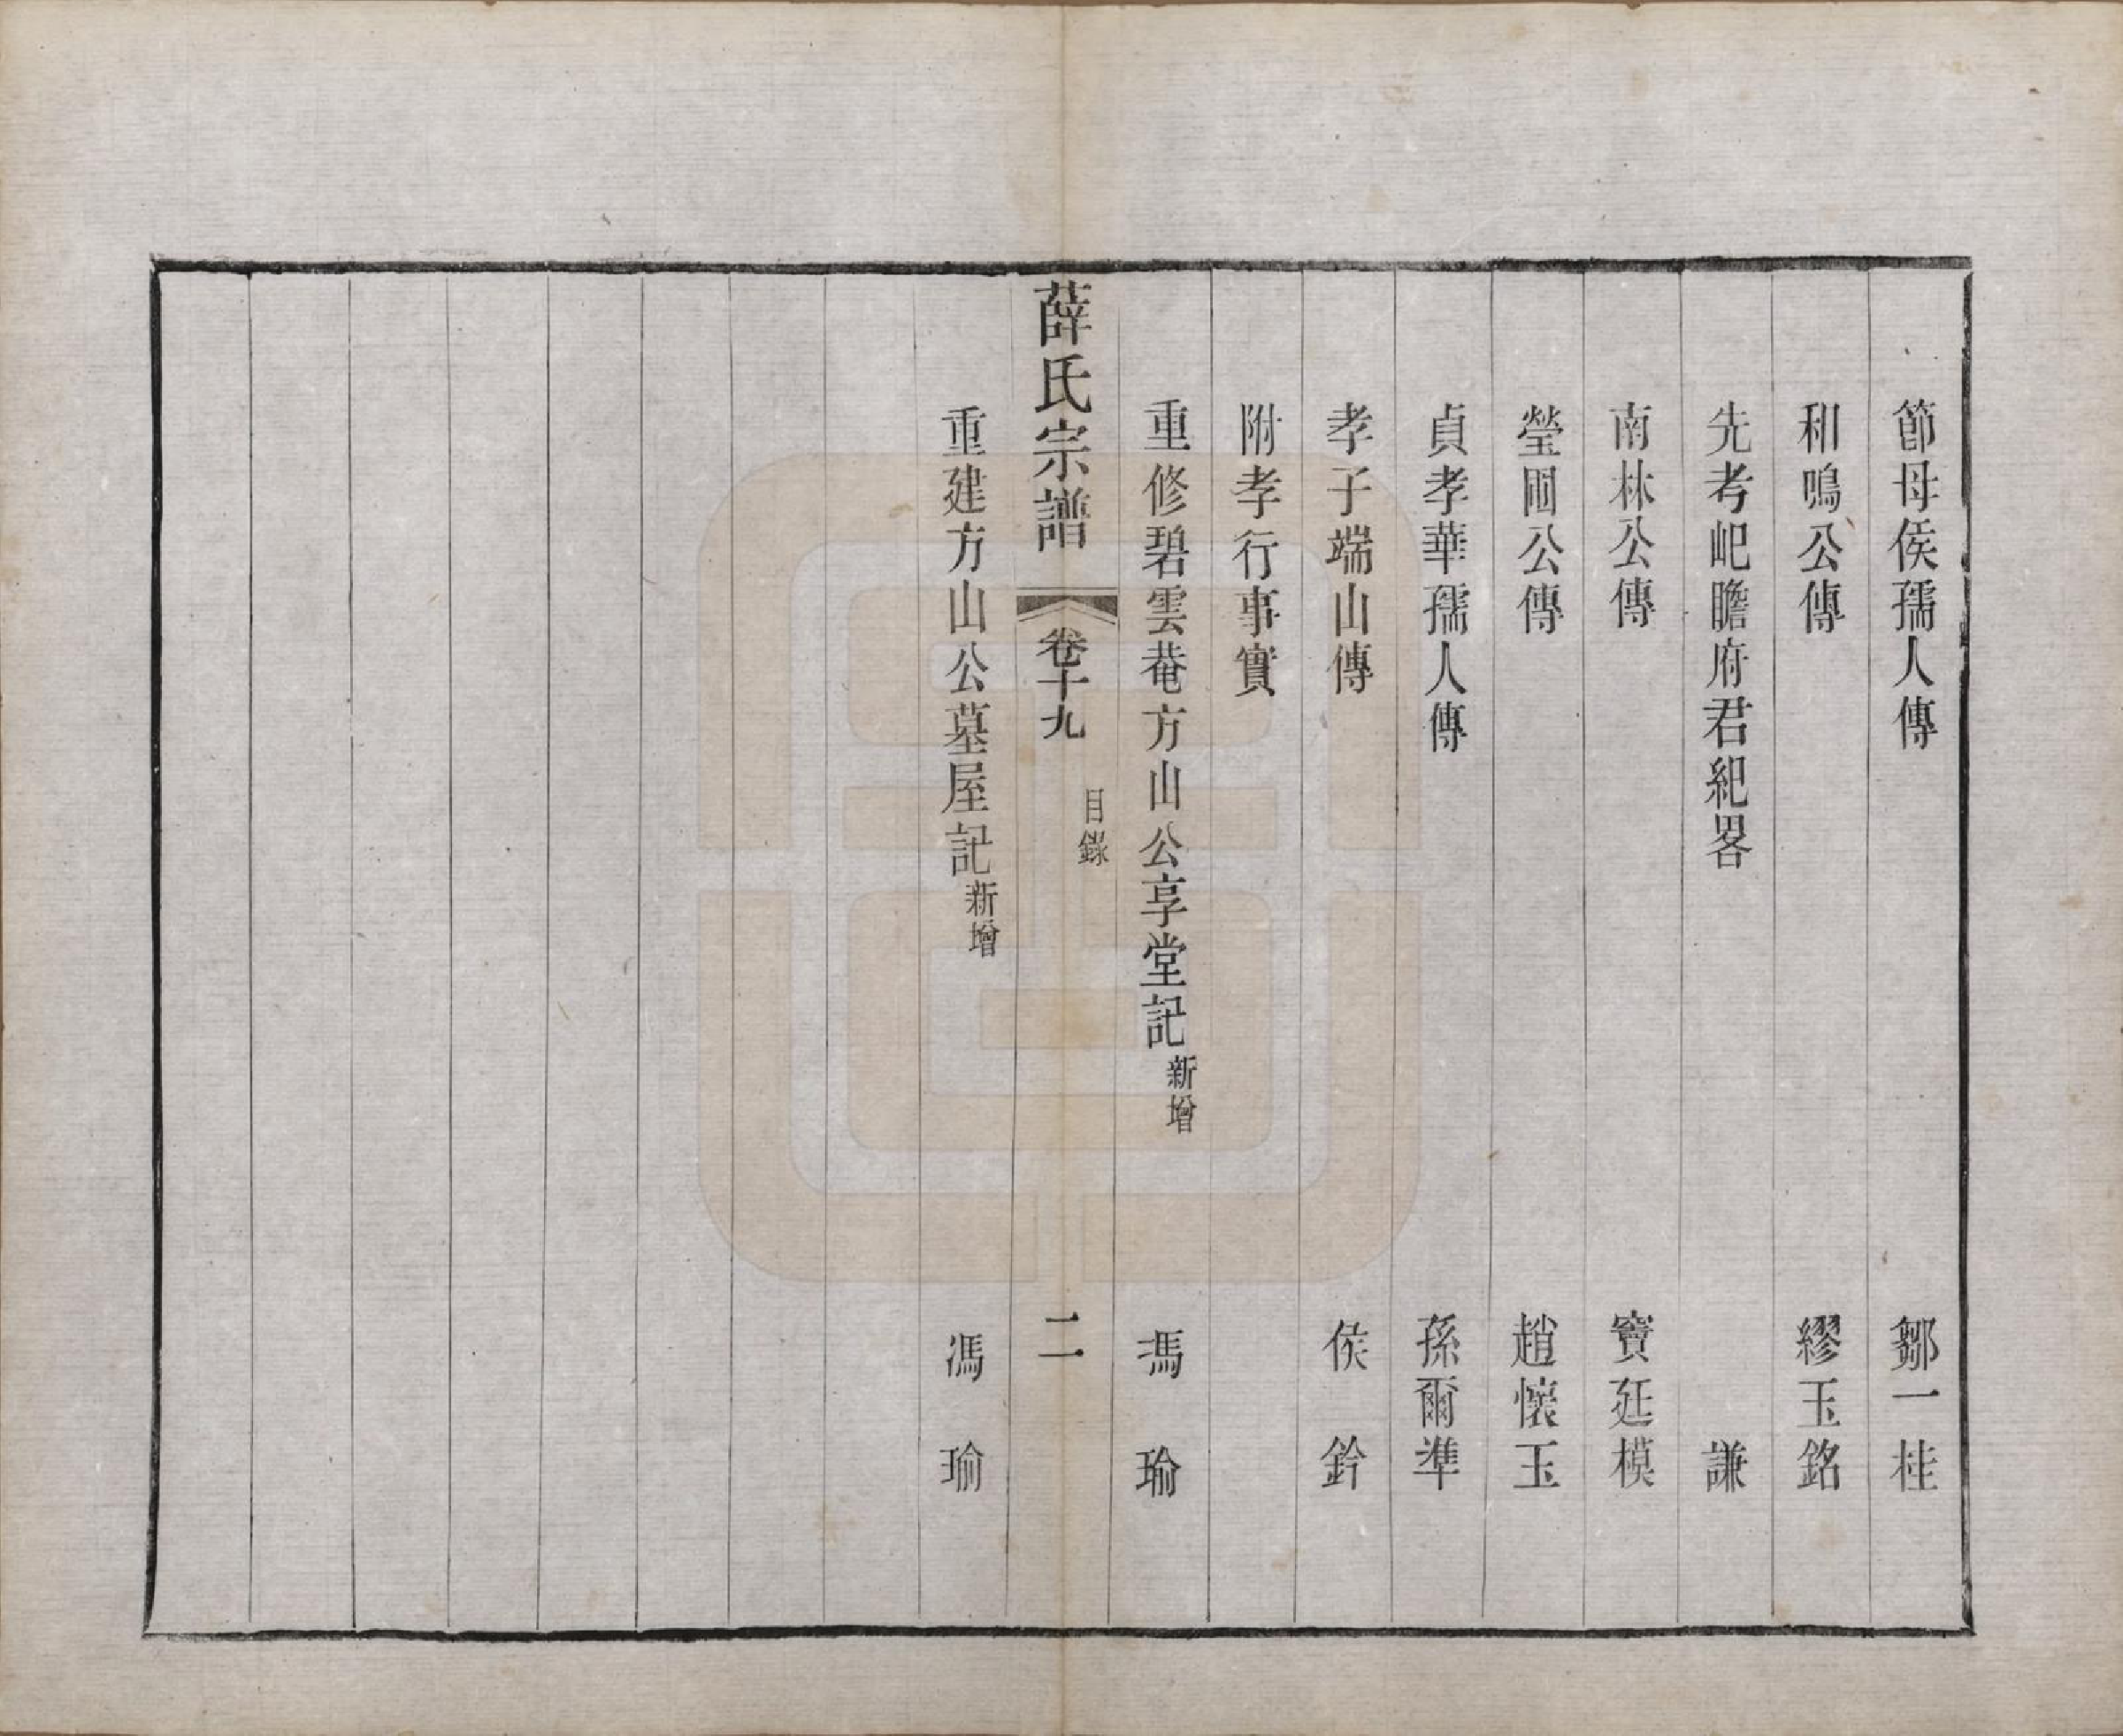 節母侯孺人傳 鄒一桂
和鳴公傳 繆玉銘
先考屺瞻府君紀畧 謙
南林公傳 竇廷模
瑩圃公傳 趙懷玉
貞孝華孺人傳 孫爾準
孝子端山傳 侯鈐
附孝行事實
重修碧雲菴方山公享堂記新增 馮瑜
薛氏宗譜 卷十九 目錄 二
重建方山公墓屋記新增 馮瑜